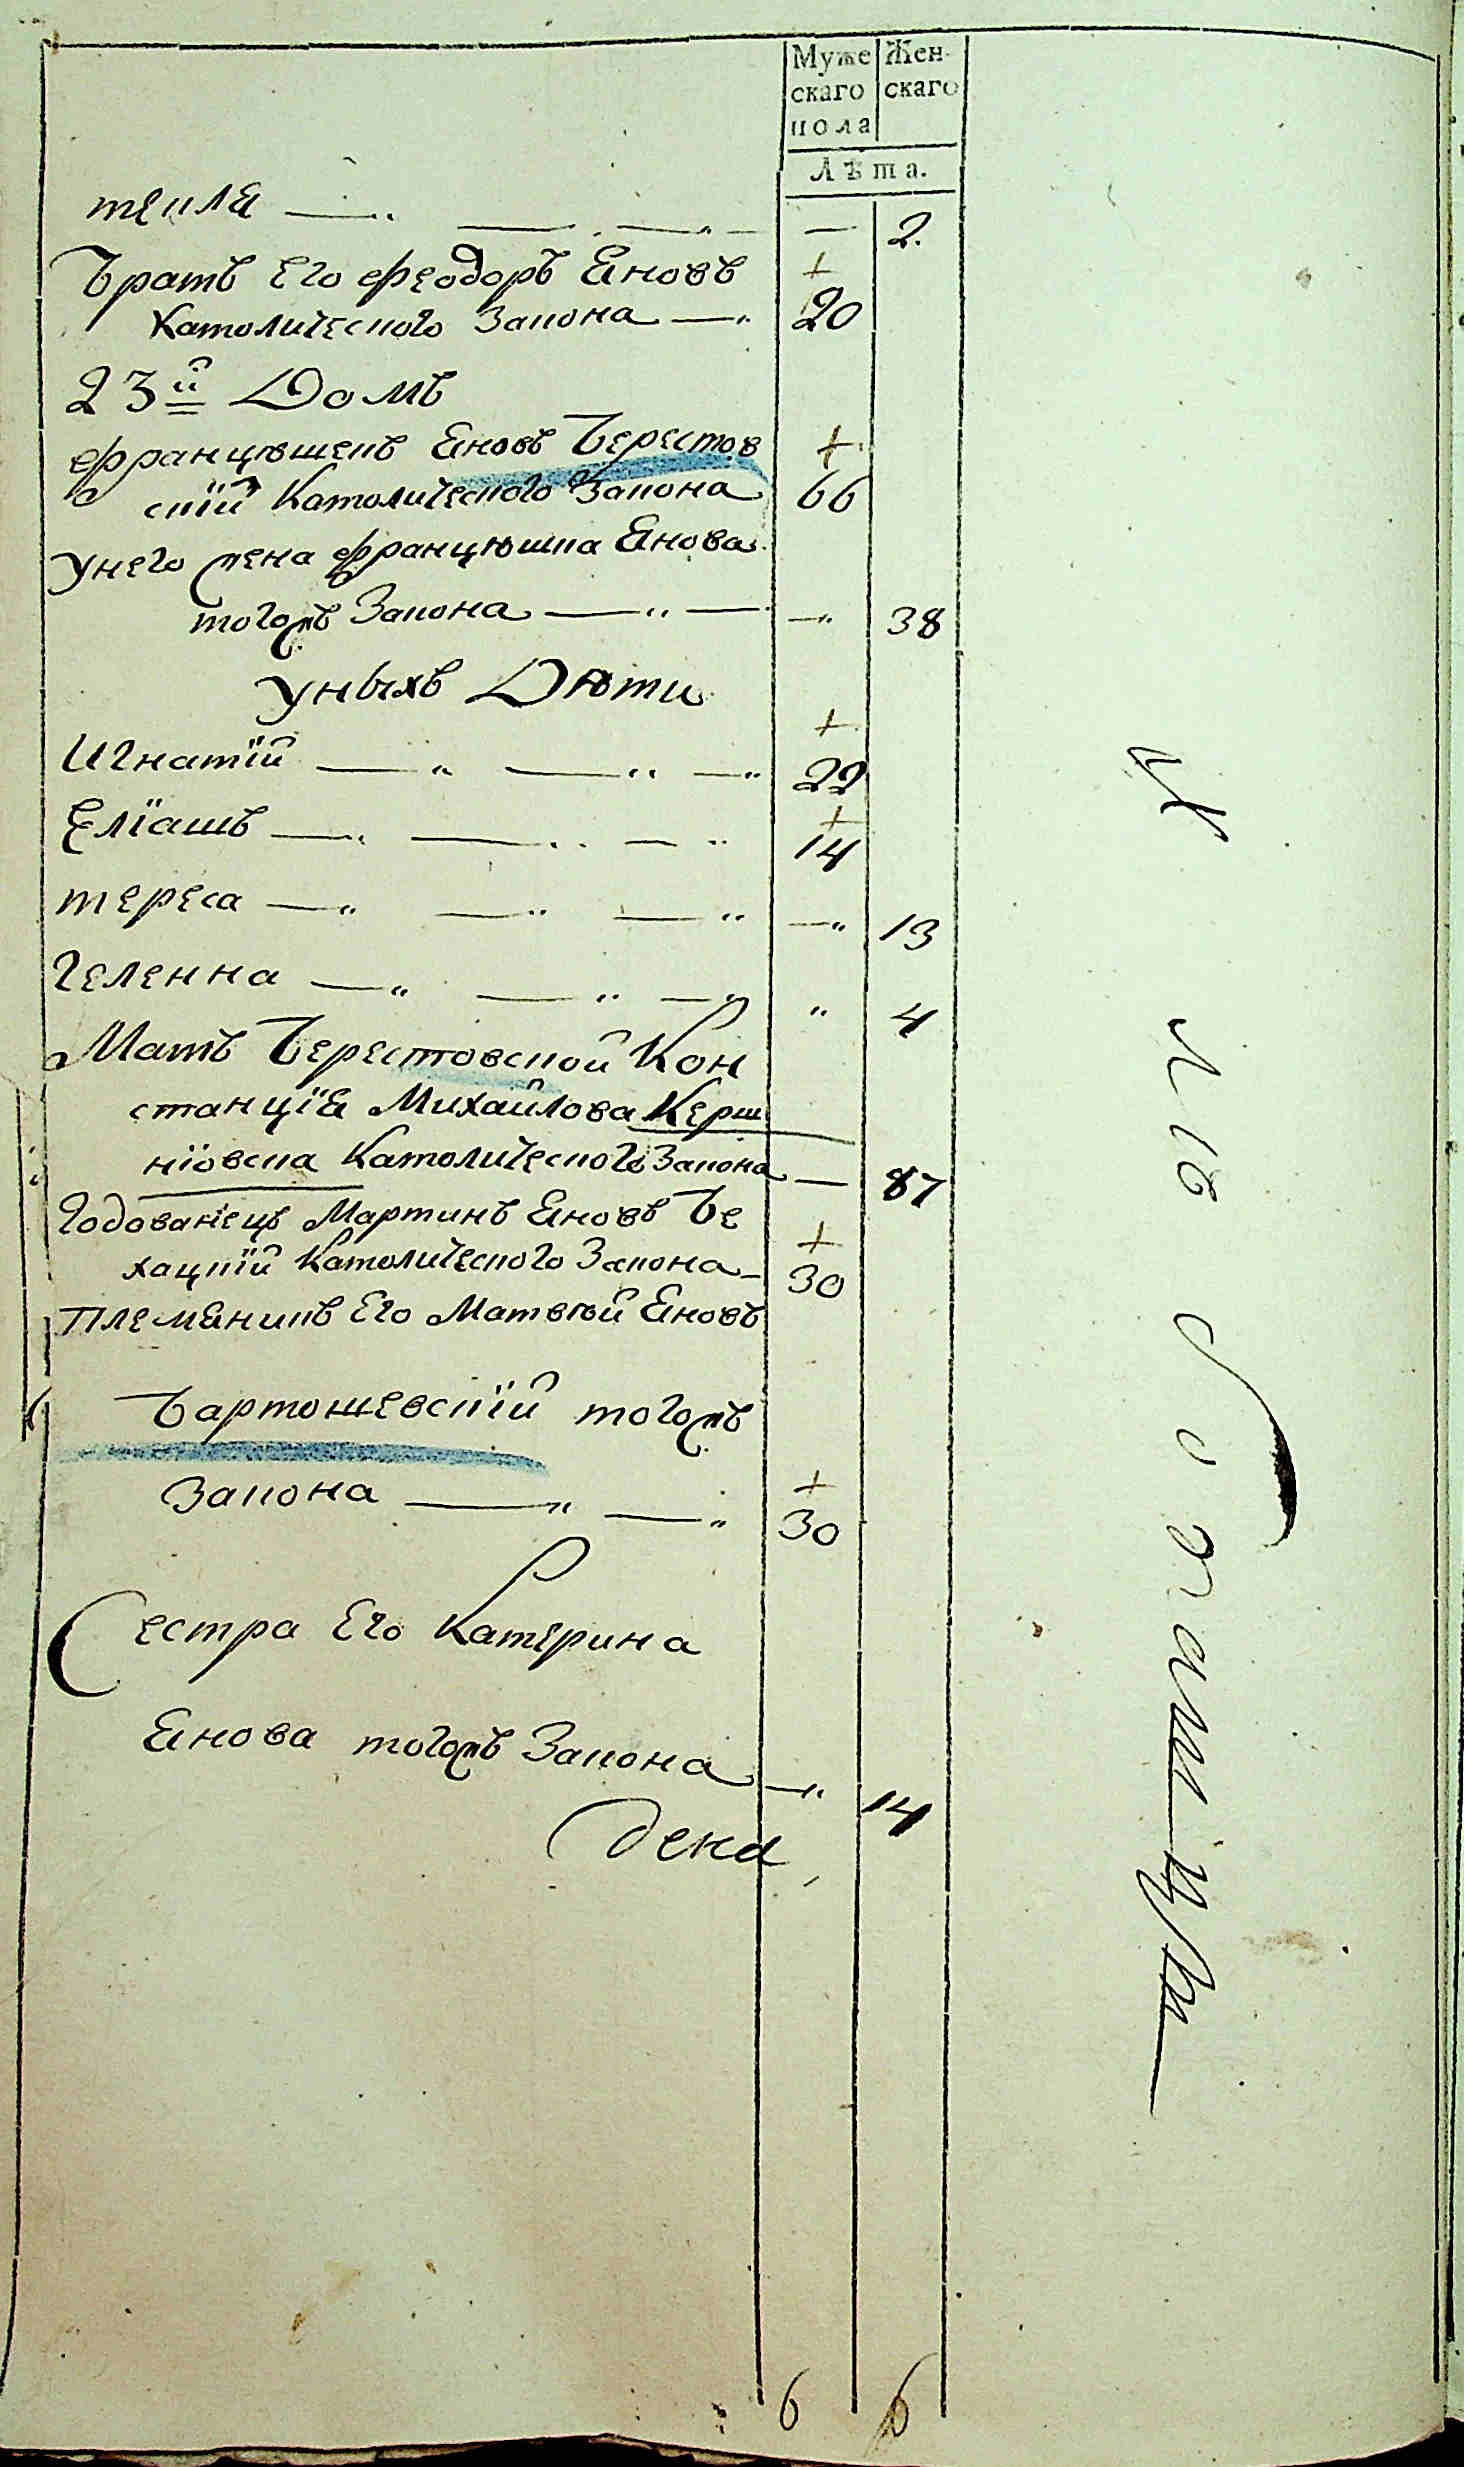 Муже Жен-
скаго скаго
пола
Лѣта.
текля — 2.
Братъ Его Феодоръ Яновъ +
Католического Закона — 20
23й Домъ
Францѣшекъ Яновъ Берестов +
скїй Католического Закона 66
Унего жена Францѣшка Янова
тогожъ Закона — 38
Унѣхъ Дѣти
+
Игнатїй — 22
+
Елїашъ — 14
тереса — 13
Геленна — 4
Мать Берестовской Кон
станцїя Михайлова Керш
нїовска Католического Закона — 87
Годованецъ Мартинъ Яновъ Бе +
хацкїй Католического Закона — 30
Племяникъ Его Матвѣй Яновъ
Бартошевскїй тогожъ
+
Закона — 30
Сестра Его Катерина
Янова тогожъ Закона — 14
6 6